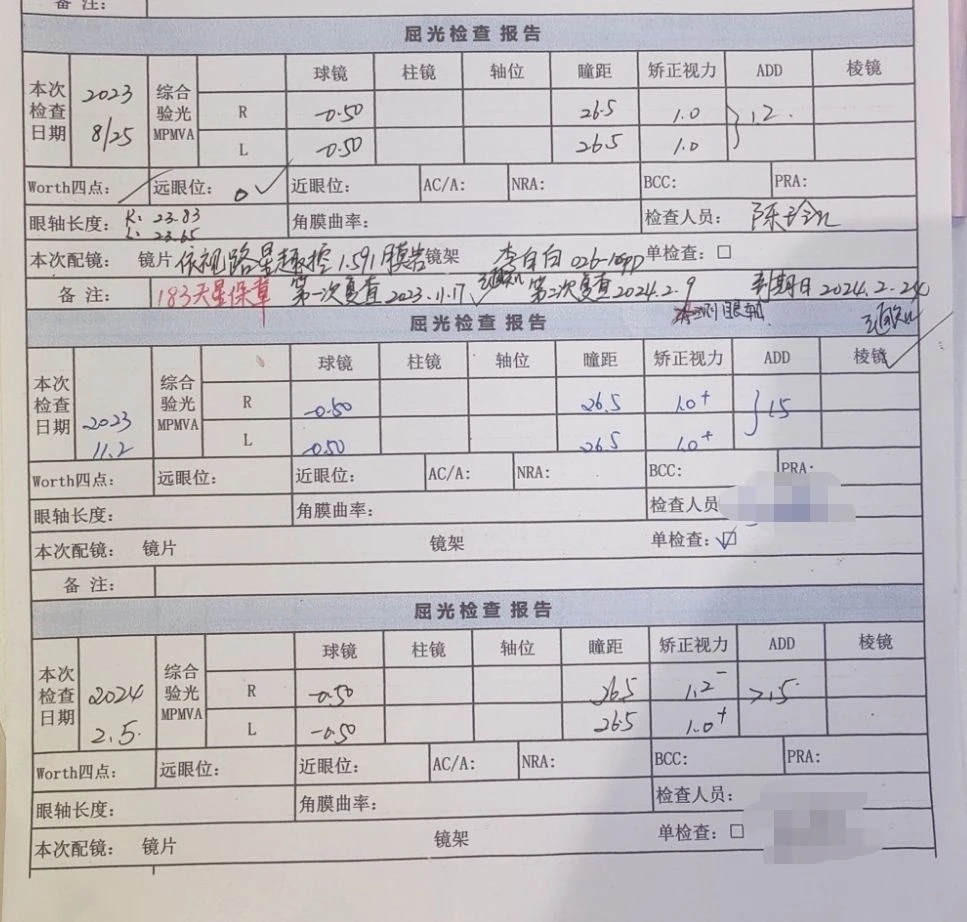 备 注：
屈光检查 报告
球镜 柱镜 轴位 瞳距 矫正视力 ADD 棱镜
本次检查日期 2023 8/25 综合验光MPMVA
R -0.50 26.5 1.0 } 1.2
L -0.50 26.5 1.0
Worth四点： 远眼位： 0 ✓ 近眼位： AC/A： NRA： BCC： PRA：
眼轴长度： R：23.83 L：23.65 角膜曲率： 检查人员
本次配镜： 镜片 依视路星趣控1.591膜岩 镜架 李白白 026- 单检查：☐
备 注： 183天星保章 第一次复查2023.11.17 ✓ 第二次复查2024.2.9 到期日2024.2.24
测眼轴
屈光检查 报告
球镜 柱镜 轴位 瞳距 矫正视力 ADD 棱镜
本次检查日期 2023 11.2 综合验光MPMVA
R -0.50 26.5 1.0+ } 1.5
L -0.50 26.5 1.0+
Worth四点： 远眼位： 近眼位： AC/A： NRA： BCC： PRA：
眼轴长度： 角膜曲率： 检查人员
本次配镜： 镜片 镜架 单检查：☑
备 注：
屈光检查 报告
球镜 柱镜 轴位 瞳距 矫正视力 ADD 棱镜
本次检查日期 2024 2.5. 综合验光MPMVA
R -0.50 26.5 1.2- >1.5
L -0.50 26.5 1.0+
Worth四点： 远眼位： 近眼位： AC/A： NRA： BCC： PRA：
眼轴长度： 角膜曲率： 检查人员：
本次配镜： 镜片 镜架 单检查：☐